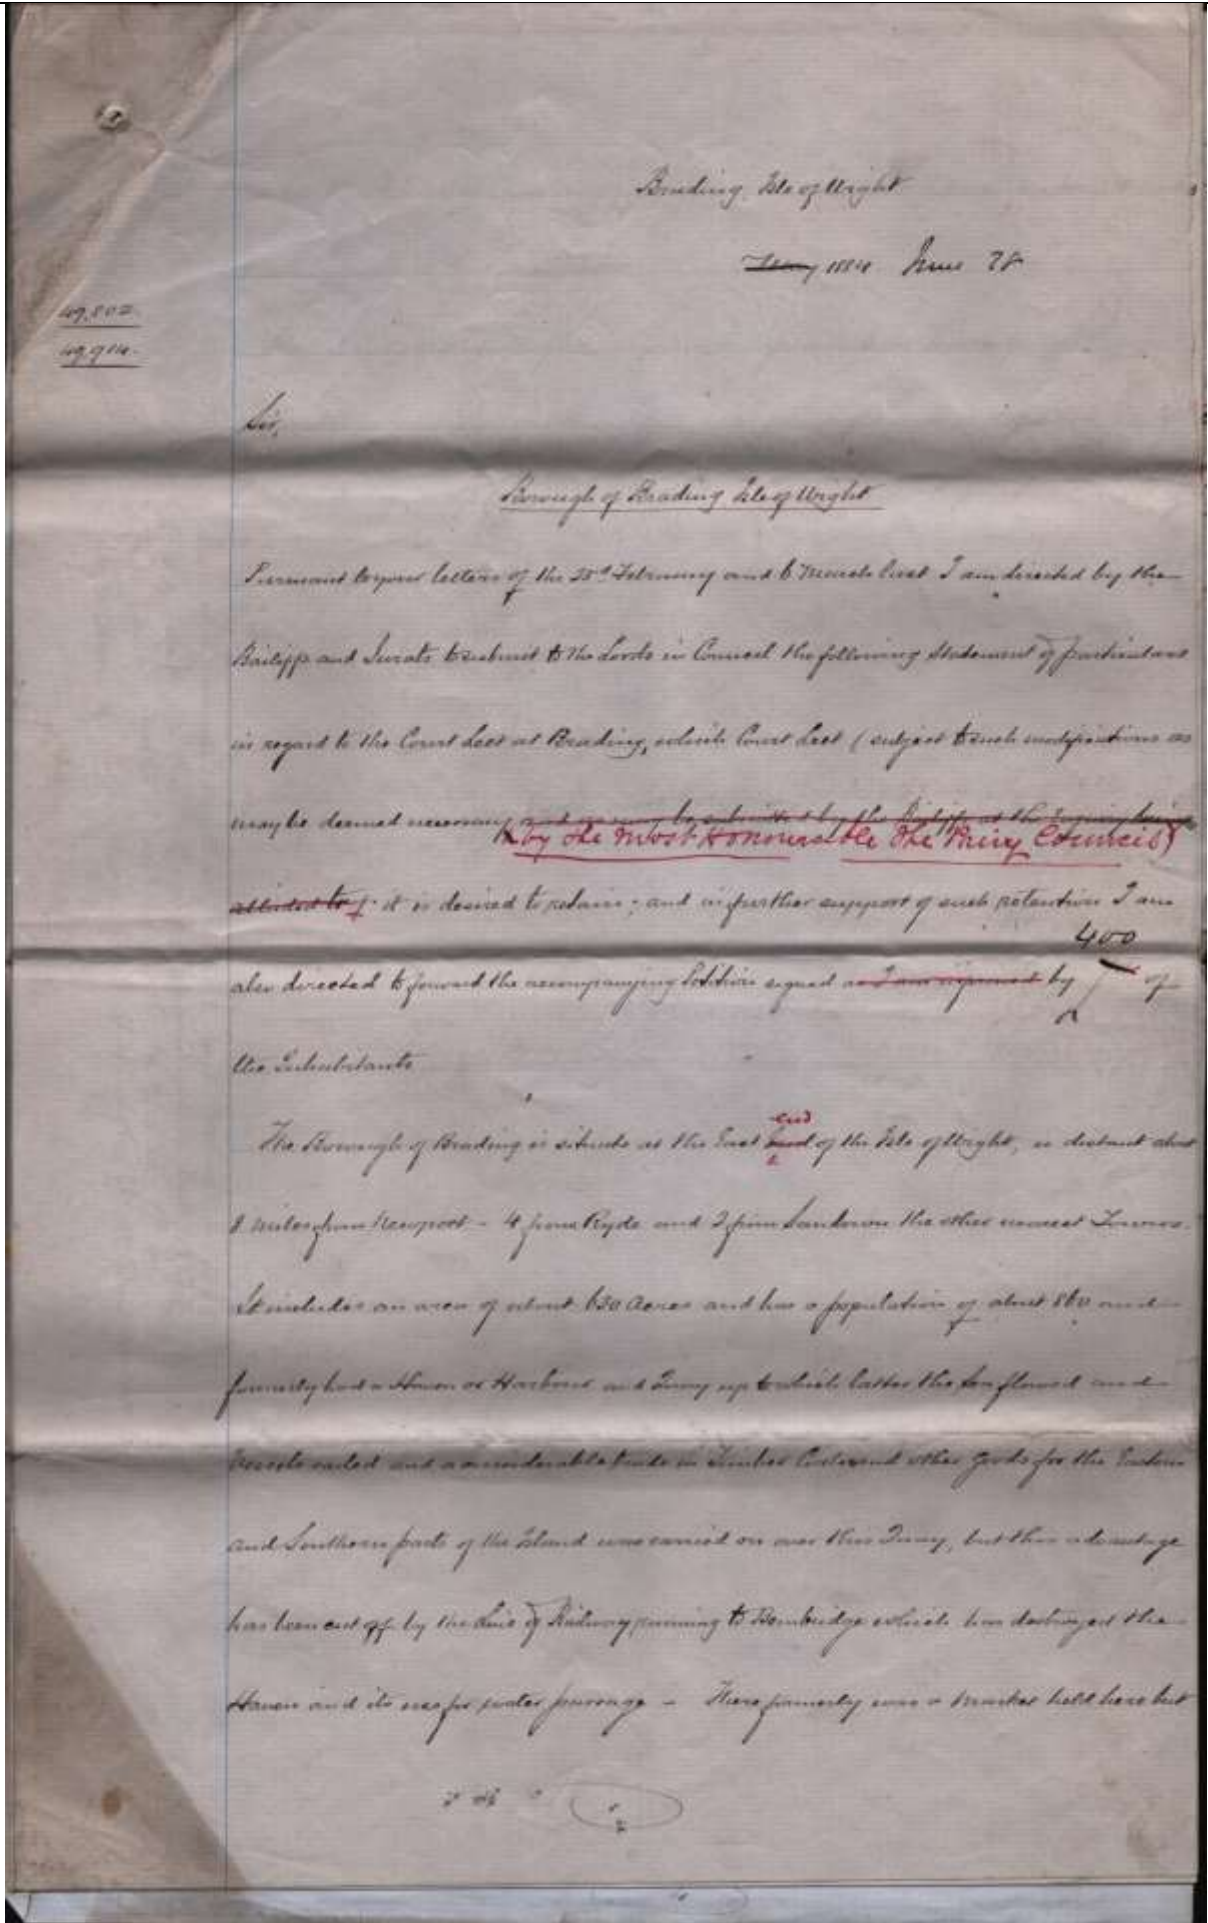 Brading, Isle of Wight
May 1884 June 28
49,802.
49,914.
Sir,
Borough of Brading Isle of Wight
Pursuant to your letters of the 25th February and 6 March last I am directed by the
Bailiffs and Jurats to submit to the Lords in Council the following Statement of particulars
in regard to the Court Leet at Brading, which Court Leet (subject to such modifications as
may be deemed necessary and as may be submitted by the Bailiff at the Inquiry being
by the Most Honourable The Privy Council)
alluded to) it is desired to retain; and in further support of such retention I am
400
also directed to forward the accompanying Petition signed as I am informed by of
the Inhabitants
end
The Borough of Brading is situate at the East end of the Isle of Wight, is distant about
8 miles from Newport – 4 from Ryde and 2 from Sandown the other nearest Towns.
It includes an area of about 630 Acres and has a population of about 860 and
formerly had a Haven or Harbour and Quay up to which latter the Sea flowed and
Vessels sailed and a considerable trade in Timber Coals and other goods for the Eastern
and Southern parts of the Island was carried on over this Quay, but this advantage
has been cut off by the Line of Railway running to Bembridge which has destroyed the
Haven and its use for water passage – There formerly was a Market held here but